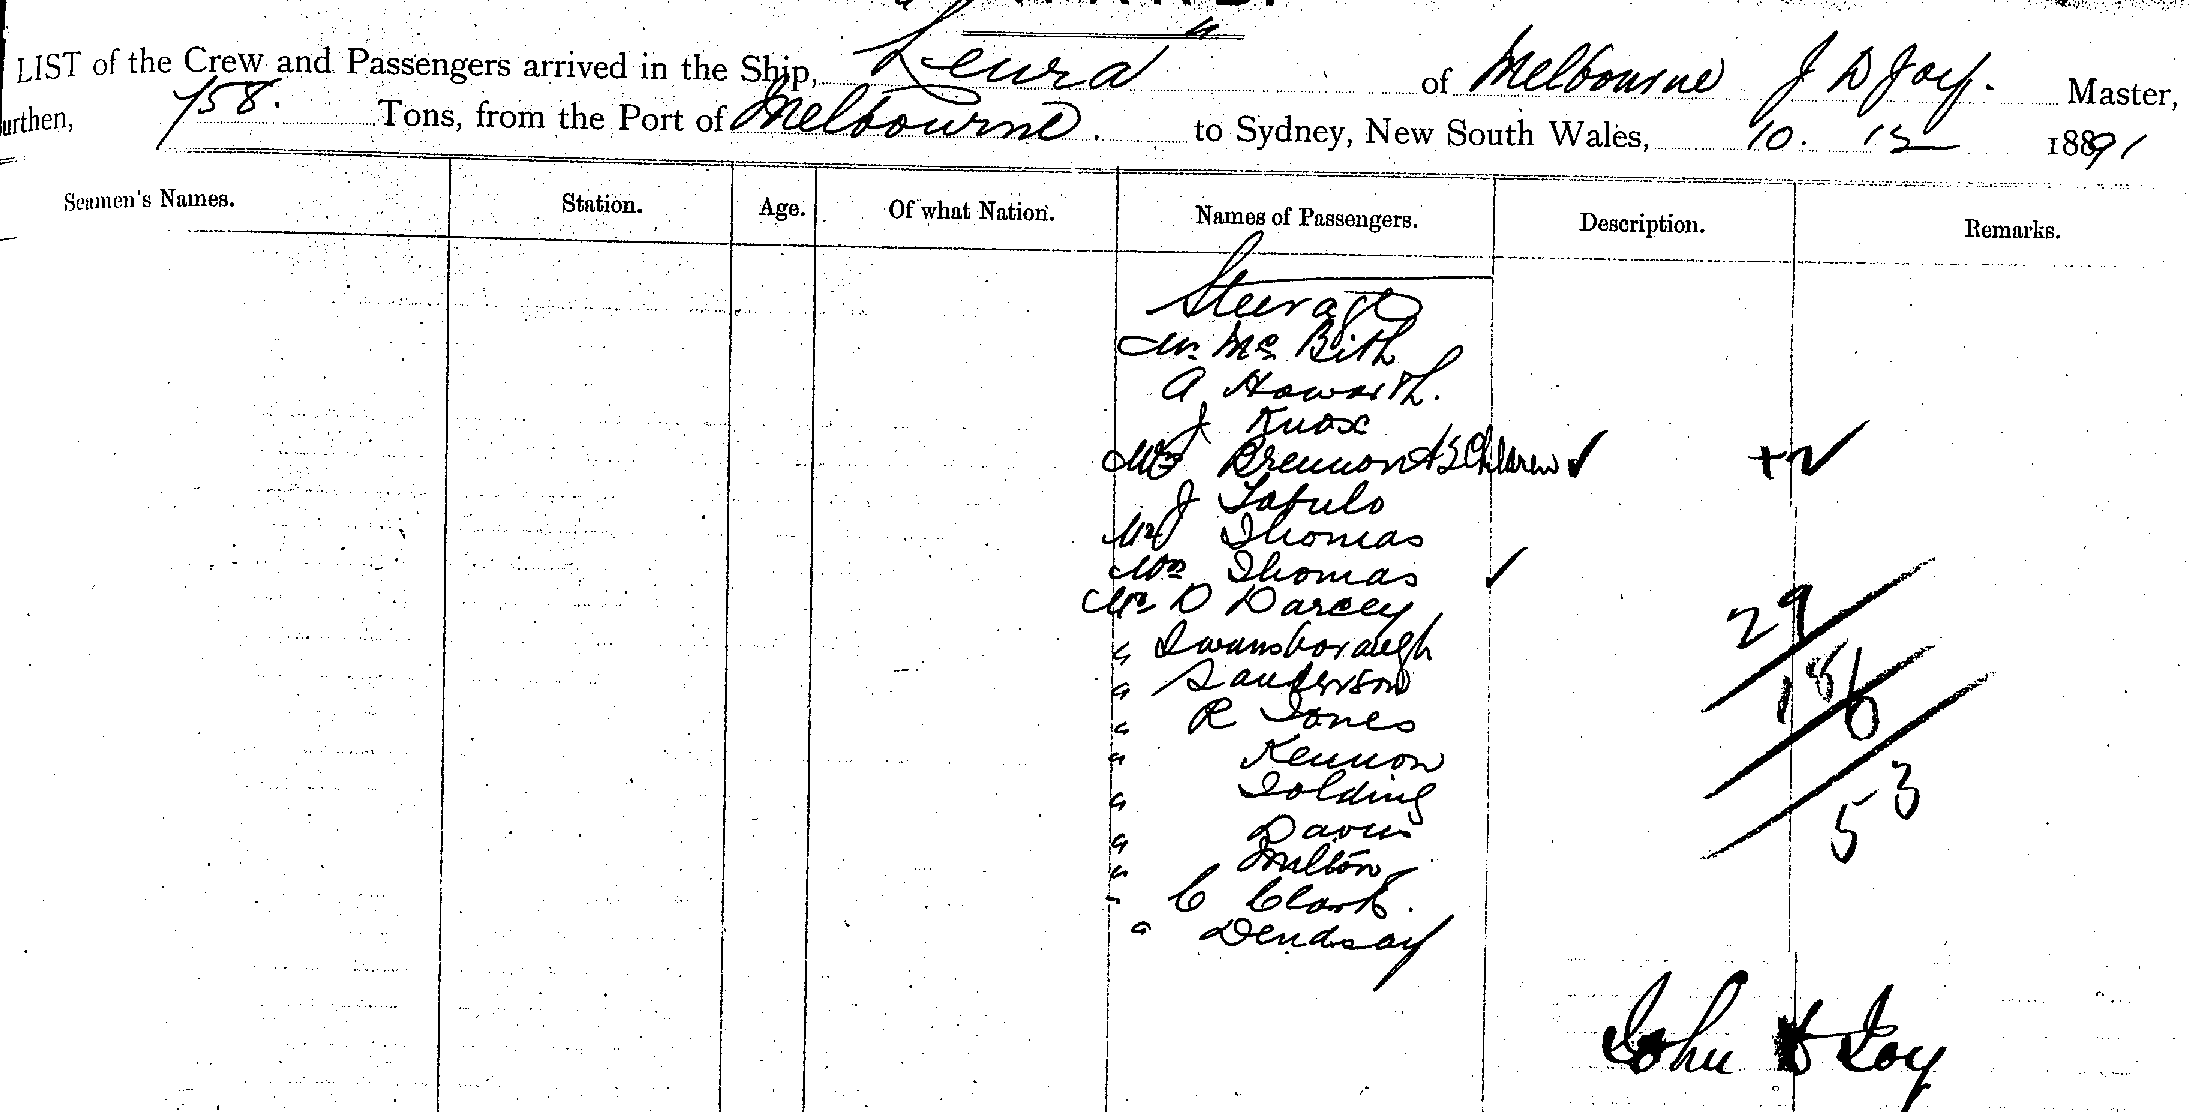 LIST of the Crew and Passengers arrived in the Ship, "Leura" of Melbourne J D Joy. Master,
urthen, 758. Tons, from the Port of Melbourne. to Sydney, New South Wales, 10. 12 1891
Seamen's Names. Station. Age. Of what Nation. Names of Passengers. Description. Remarks.
Steerage
Mr Mc Bith
A Howorth.
J Knox
Mrs Brennon & 2 Children ✓ +2
J
Mr Thomas
Mrs Thomas ✓
Mr D Darcey
" Swansborough
" Sanderson
" R Jones
" Kennon
" Golding
" Davis
" Milton
" C Clark.
" Dendsay
29
18 6
53
John D Joy